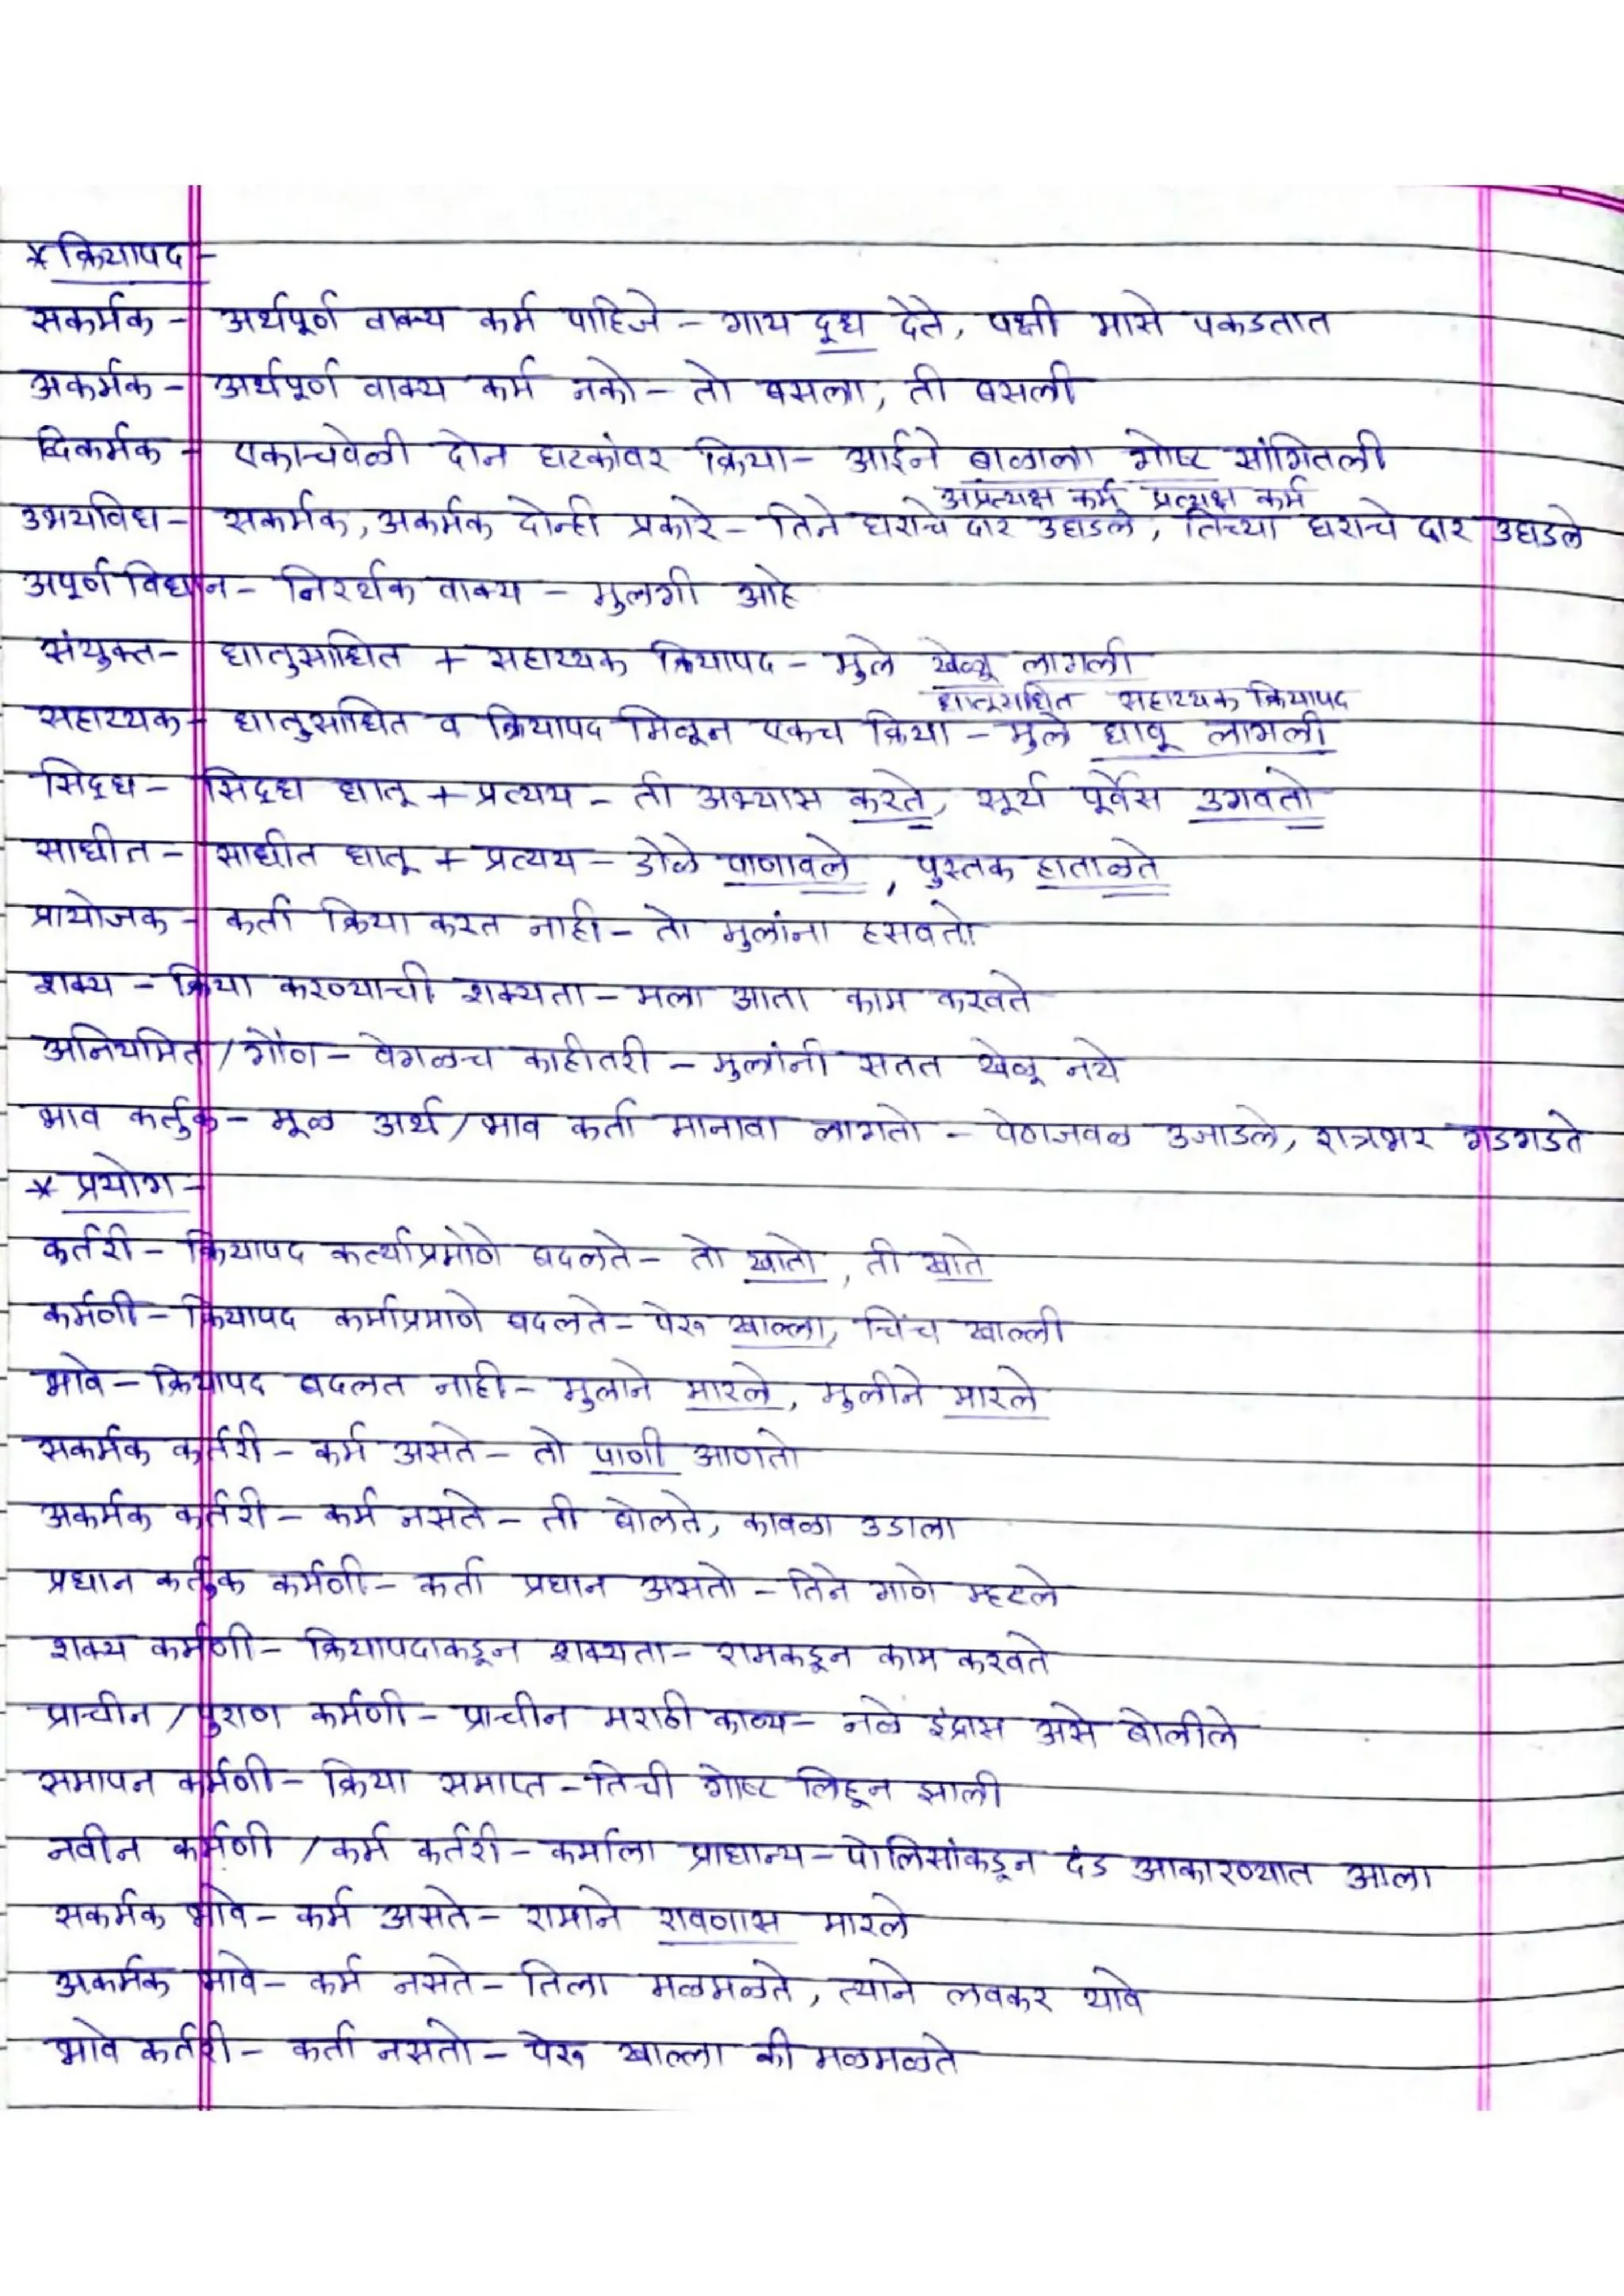 * क्रियापद -
सकर्मक - अर्थपूर्ण वाक्य कर्म पाहिजे - गाय दूध देते, पक्षी मासे पकडतात
अकर्मक - अर्थपूर्ण वाक्य कर्म नको - तो बसला, ती बसली
द्विकर्मक - एकाचवेळी दोन घटकांवर क्रिया - आईने बाळाला गोष्ट सांगितली
अप्रत्यक्ष कर्म प्रत्यक्ष कर्म
उभयविध - सकर्मक, अकर्मक दोन्ही प्रकारे - तिने घराचे दार उघडले, तिच्या घराचे दार उघडले
अपूर्ण विधान - निरर्थक वाक्य - मुलगी आहे
संयुक्त - धातुसाधित + सहाय्यक क्रियापद - मुले खेळू लागली
धातूसाधित सहाय्यक क्रियापद
सहाय्यक - धातुसाधित व क्रियापद मिळून एकच क्रिया - मुले धावू लागली
सिद्ध - सिद्ध धातू + प्रत्यय - ती अभ्यास करते, सूर्य पूर्वेस उगवतो
साधीत - साधीत धातू + प्रत्यय - डोळे पाणावले, पुस्तक हाताळते
प्रायोजक - कर्ता क्रिया करत नाही - तो मुलांना हसवतो
शक्य - क्रिया करण्याची शक्यता - मला आता काम करवते
अनियमित / गौण - वेगळच काहीतरी - मुलांनी सतत खेळू नये
भाव कर्तुक - मूळ अर्थ / भाव कर्ता मानावा लागतो - पेणजवळ उजाडले, रात्रभर गडगडते
* प्रयोग -
कर्तरी - क्रियापद कर्त्याप्रमाणे बदलते - तो खातो, ती खाते
कर्मणी - क्रियापद कर्माप्रमाणे बदलते - पेरू खाल्ला, चिंच खाल्ली
भावे - क्रियापद बदलत नाही - मुलाने मारले, मुलीने मारले
सकर्मक कर्तरी - कर्म असते - तो पाणी आणतो
अकर्मक कर्तरी - कर्म नसते - ती बोलते, कावळा उडाला
प्रधान कर्तुक कर्मणी - कर्ता प्रधान असतो - तिने गाणे म्हटले
शक्य कर्मणी - क्रियापदाकडून शक्यता - रामकडून काम करवते
प्राचीन / पुराण कर्मणी - प्राचीन मराठी काव्य - नळे इंद्रास असे बोलीले
समापन कर्मणी - क्रिया समाप्त - तिची गोष्ट लिहून झाली
नवीन कर्मणी / कर्म कर्तरी - कर्माला प्राधान्य - पोलिसांकडून दंड आकारण्यात आला
सकर्मक भावे - कर्म असते - रामाने रावणास मारले
अकर्मक भावे - कर्म नसते - तिला मळमळते, त्याने लवकर यावे
भावे कर्तरी - कर्ता नसतो - पेरू खाल्ला की मळमळते